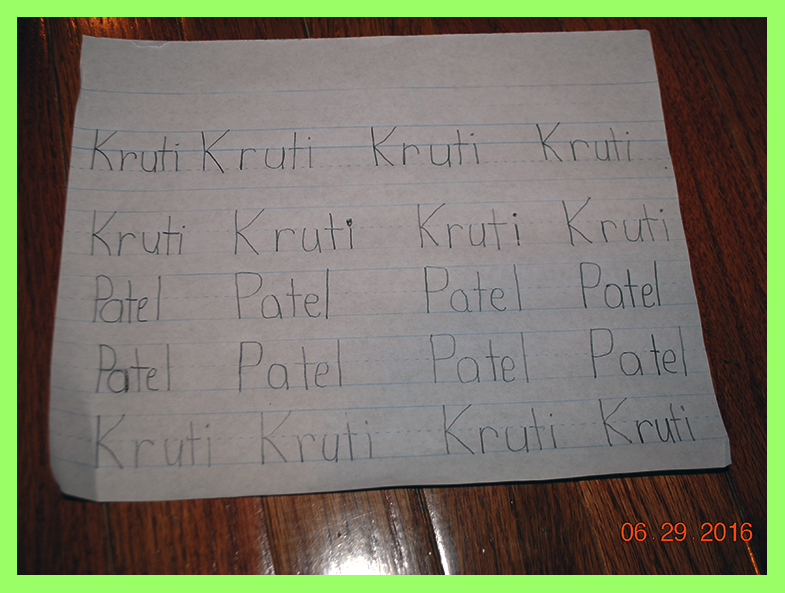 Kruti Kruti Kruti Kruti
Kruti Kruti Kruti Kruti
Patel Patel Patel Patel
Patel Patel Patel Patel
Kruti Kruti Kruti Kruti
06 29 2016